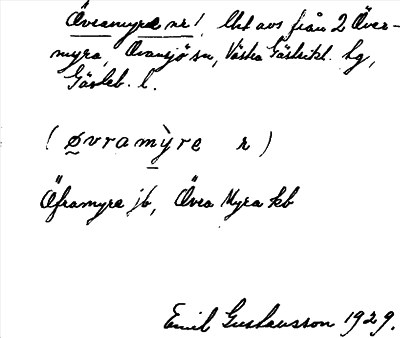 Övramyre nr 1, Uht avs från 2 Över-
myra, Ovansjö sn, Västra Gästrikl. hg,
Gävleb. l.
( øvramỳre r )
Öframyre jb, Övra Myra kb
Emil Gustavsson 1929.